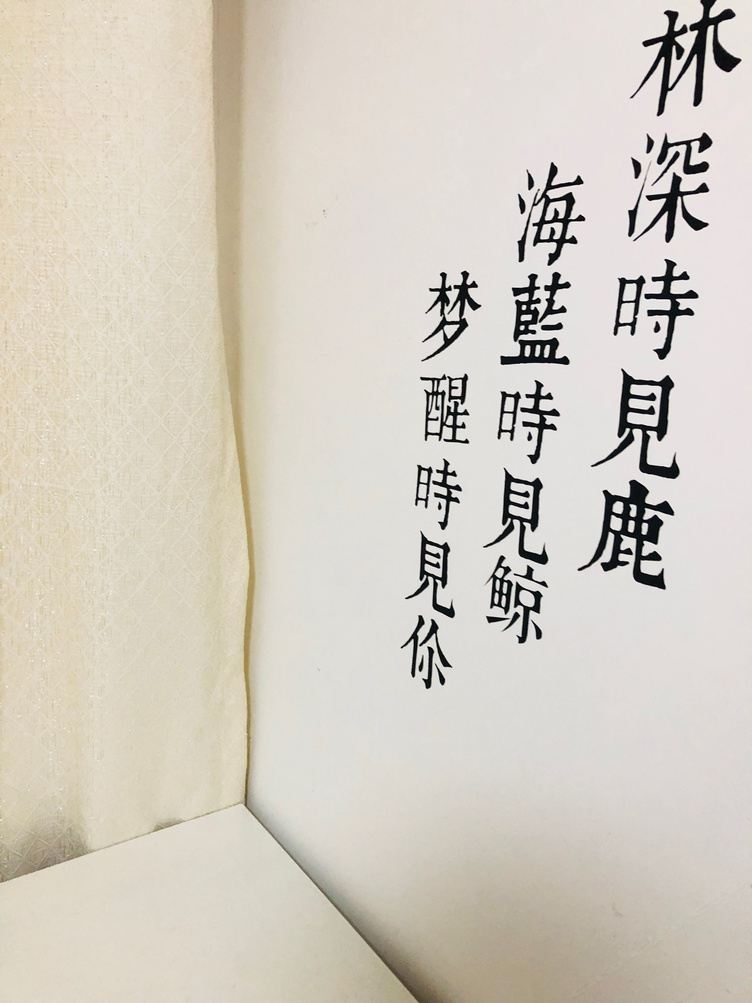 林深時見鹿
海藍時見鲸
梦醒時見你